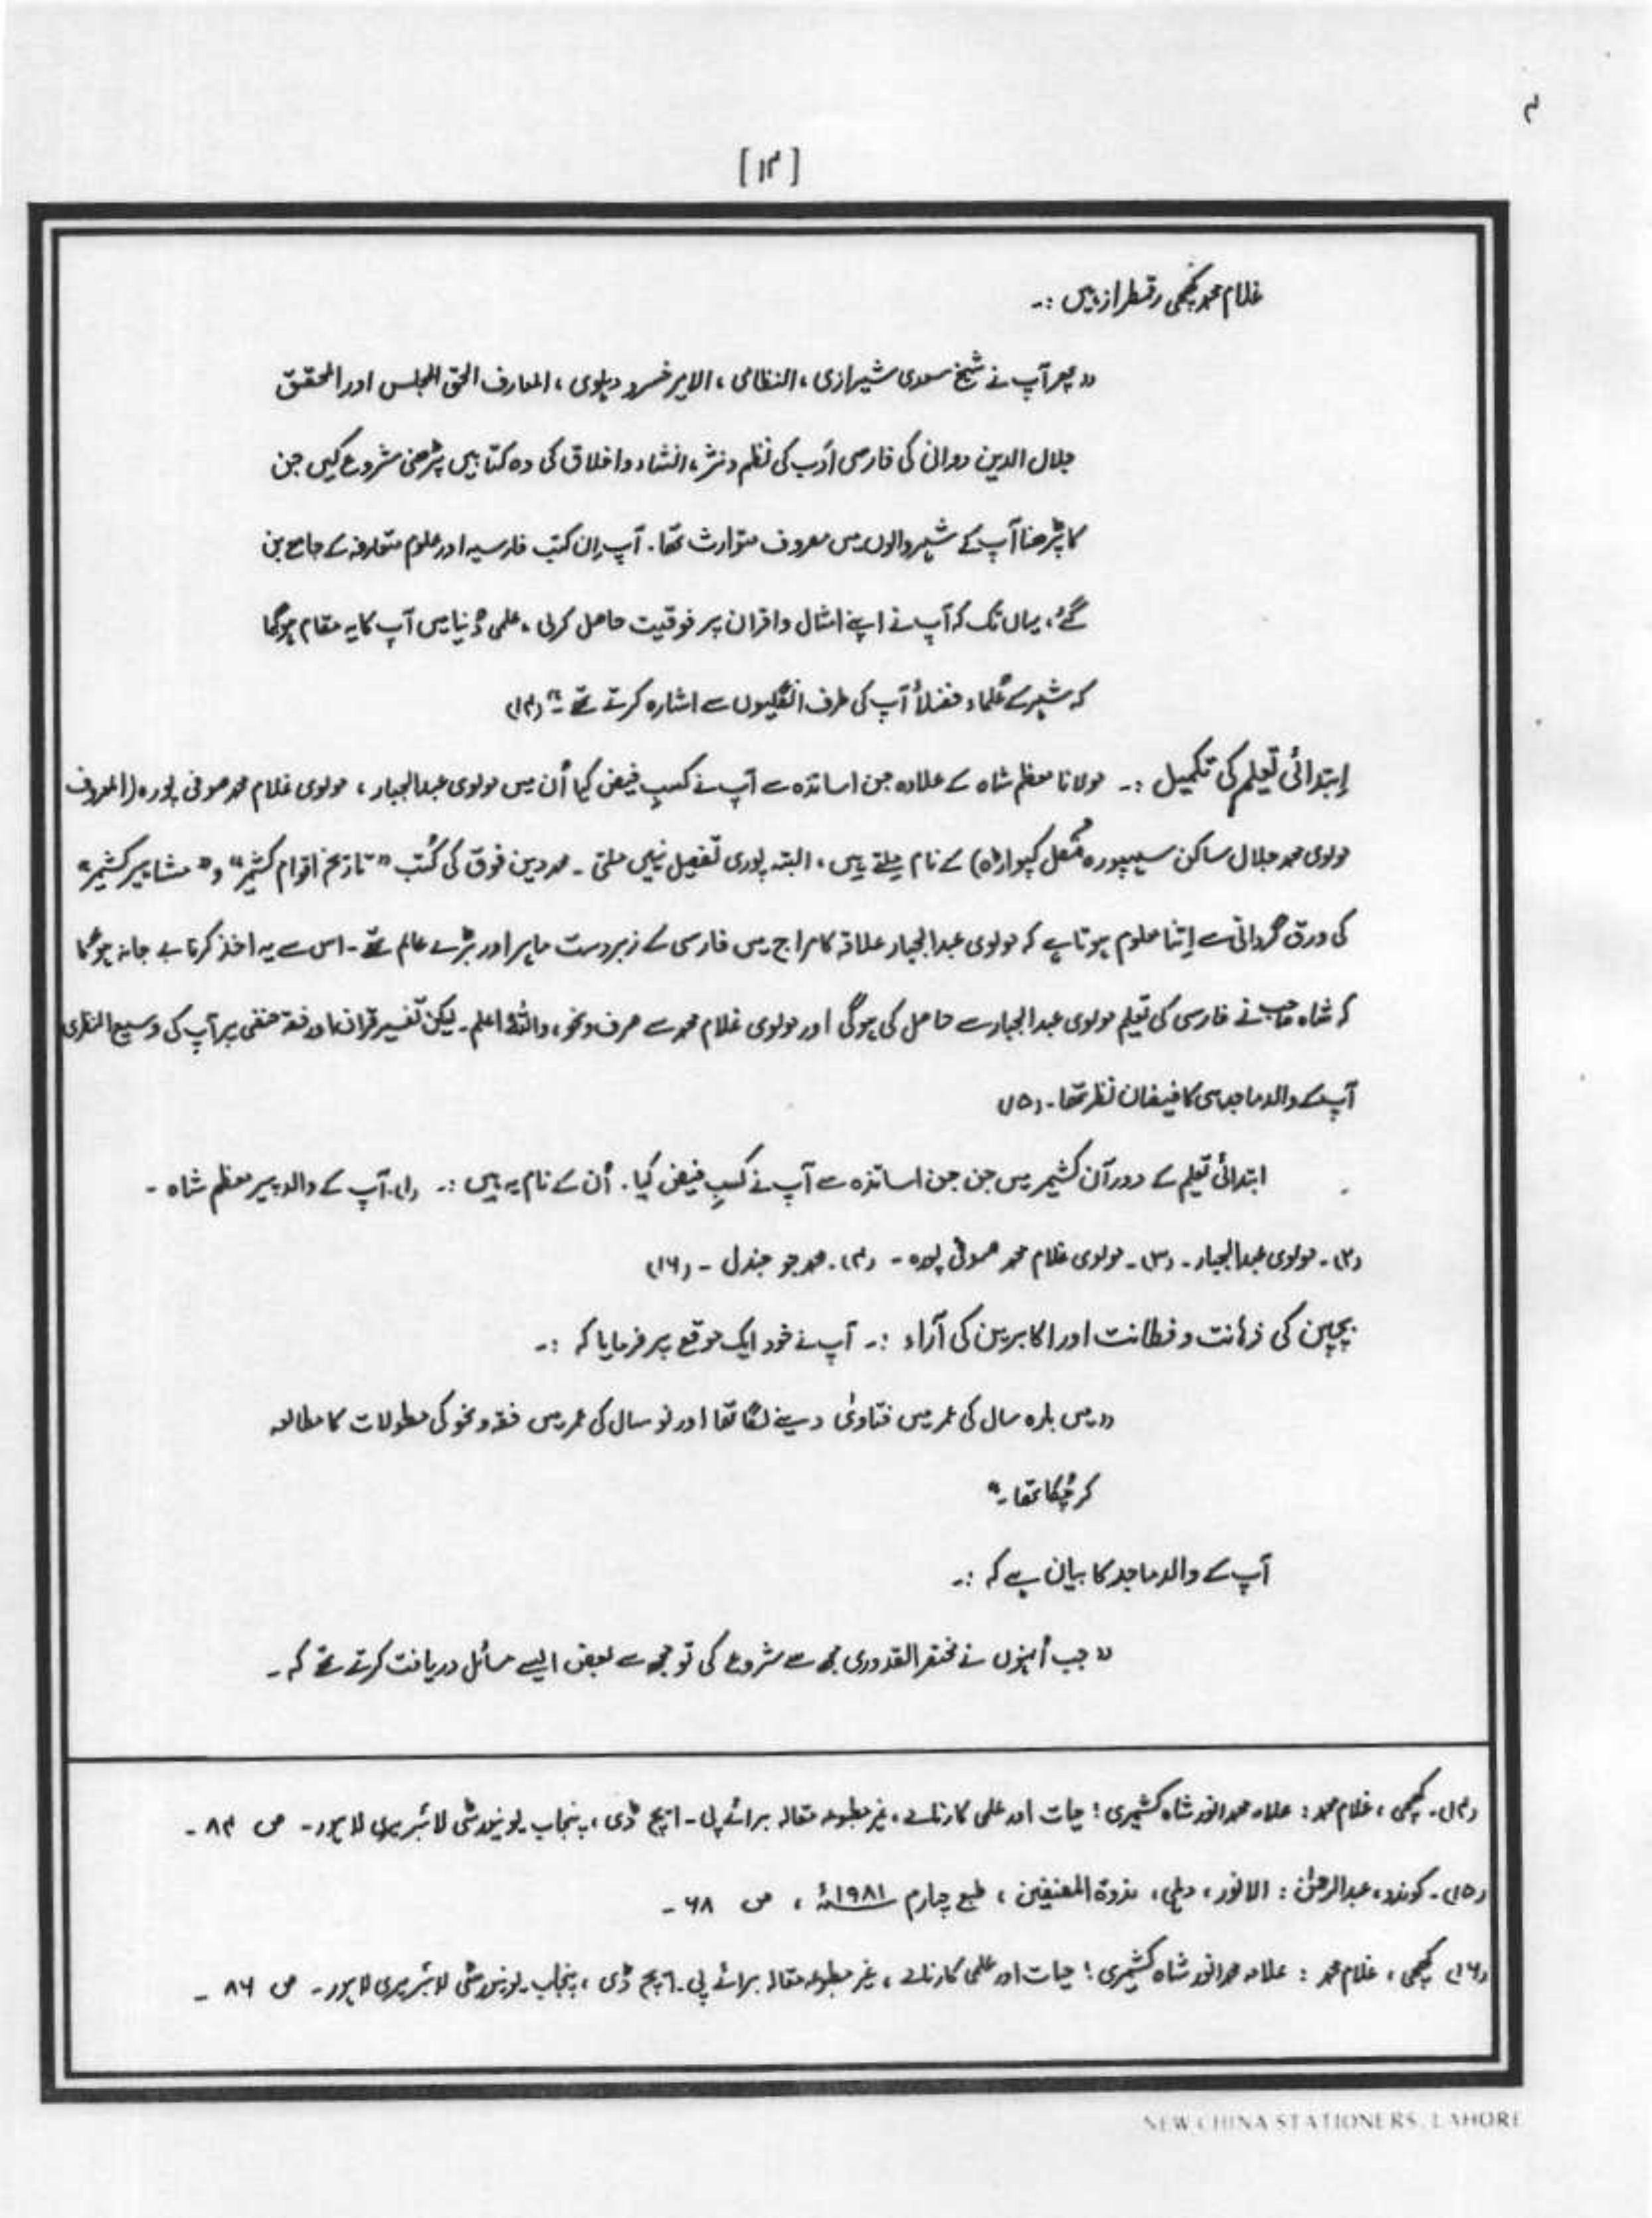 ۴
[ ۱۴ ]
غلام محمد کچھی رقمطراز ہیں :۔
"پھر آپ نے شیخ سعدی شیرازی، النظامی، الامیر خسرو دہلوی، العارف الحق المجلس اور المحقق
جلال الدین دوانی کی فارسی ادب کی نظم و نثر، انشاء و اخلاق کی وہ کتابیں پڑھنی شروع کیں جن
کا پڑھنا آپ کے شہر والوں میں معروف متوارث تھا۔ آپ اِن کتب فارسیہ اور علوم متعارفہ کے جامع بن
گئے، یہاں تک کہ آپ نے اپنے امثال و اقران پر فوقیت حاصل کر لی، علمی دُنیا میں آپ کا یہ مقام ہو گیا
کہ شہر کے عُلماء و فضلاءُ آپ کی طرف انگلیوں سے اشارہ کرتے تھے۔" (۱۴)
اِبتدائی تعلیم کی تکمیل :۔ مولانا معظم شاہ کے علاوہ جن اساتذہ سے آپ نے کسبِ فیض کیا اُن میں مولوی عبدالجبار، مولوی غلام محمد صوفی پورہ (المعروف
مولوی محمد جلال ساکن سیپورہ متصل کپواڑہ) کے نام ملتے ہیں، البتہ پوری تفصیل نہیں ملتی۔ محمد دین فوق کی کُتب "تاریخ اقوام کشمیر" و "مشاہیر کشمیر"
کی ورق گردانی سے اِتنا معلوم ہوتا ہے کہ مولوی عبدالجبار علاقہ کامراج میں فارسی کے زبردست ماہر اور بڑے عالم تھے۔ اس سے یہ اخذ کرنا بے جا نہ ہو گا
کہ شاہ صاحب نے فارسی کی تعلیم مولوی عبدالجبار سے حاصل کی ہوگی اور مولوی غلام محمد سے صرف و نحو، واللّٰہ اعلم۔ لیکن تفسیر قرآن اور فقہ حنفی پر آپ کی وسیع النظری
آپ کے والد ماجد ہی کا فیضان نظر تھا۔ (۱۵)
ابتدائی تعلیم کے دورآن کشمیر میں جن جن اساتذہ سے آپ نے کسبِ فیض کیا۔ اُن کے نام یہ ہیں :۔ (۱)۔ آپ کے والد پیر معظم شاہ ۔
(۲)۔ مولوی عبدالجبار ۔ (۳)۔ مولوی غلام محمد صوفی پورہ ۔ (۴)۔ محمد جو جندل ۔ (۱۶)
بچپن کی ذہانت و فطانت اور اکابرین کی آراء :۔ آپ نے خود ایک موقع پر فرمایا کہ :۔
"میں بارہ سال کی عمر میں فتاویٰ دینے لگا تھا اور نو سال کی عمر میں فقہ و نحو کی مطولات کا مطالعہ
کر چُکا تھا۔"
آپ کے والد ماجد کا بیان ہے کہ :۔
"جب اُنہوں نے مختصر القدوری مجھ سے شروع کی تو مجھ سے بعض ایسے مسائل دریافت کرتے تھے کہ ۔
(۱۴)۔ کچھی، غلام محمد : علامہ محمد انور شاہ کشمیری؛ حیات اور علمی کارنامے، غیر مطبوعہ مقالہ برائے پی۔ ایچ ڈی، پنجاب یونیورسٹی لائبریری لاہور۔ ص ۸۴ ۔
(۱۵)۔ کوندو، عبدالرحمٰن : الانور، دہلی، ندوۃ المصنفین، طبع چہارم ۱۹۸۱ء، ص ۶۸ ۔
(۱۶) کچھی، غلام محمد : علامہ محمد انور شاہ کشمیری؛ حیات اور علمی کارنامے، غیر مطبوعہ مقالہ برائے پی۔ ایچ ڈی، پنجاب یونیورسٹی لائبریری لاہور۔ ص ۸۶ ۔
NEW CHINA STATIONERS, LAHORE